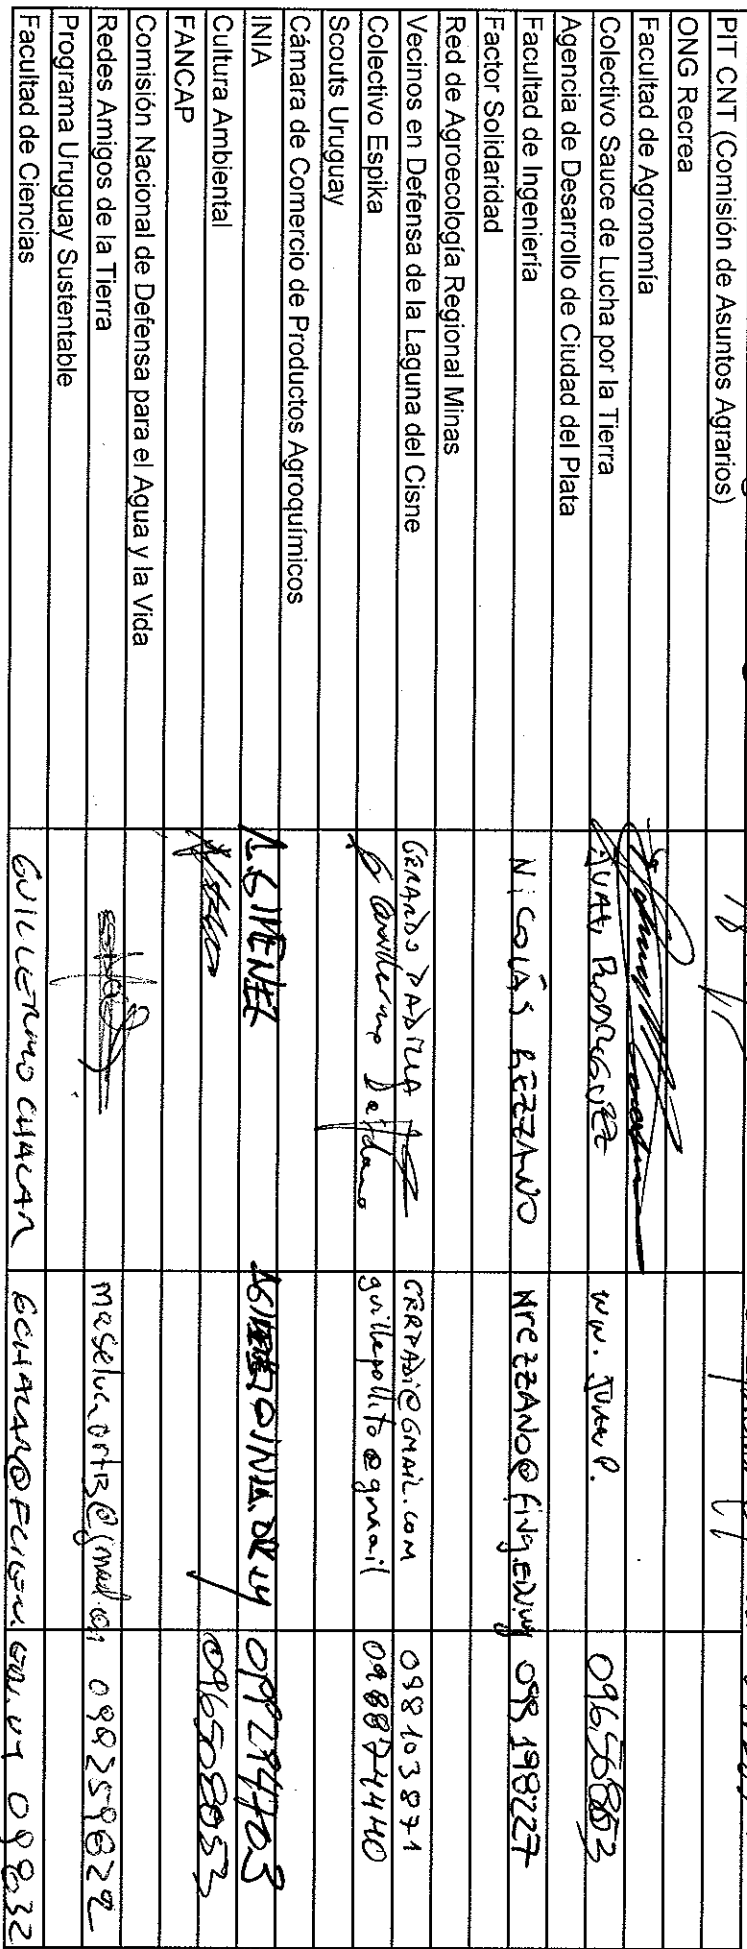 PIT CNT (Comisión de Asuntos Agrarios)
ONG Recrea
Facultad de Agronomía
Colectivo Sauce de Lucha por la Tierra JUAN RODRIGUEZ WW. JUAN P. 096568853
Agencia de Desarrollo de Ciudad del Plata
Facultad de Ingeniería NICOLÁS REZZANO NREZZANO@fing.EDU.uy 098 198227
Factor Solidaridad
Red de Agroecología Regional Minas
Vecinos en Defensa de la Laguna del Cisne GERARDO PADILLA GERPADI@GMAIL.COM 098103871
Colectivo Espika guillepollito@gmail 098874440
Scouts Uruguay
Cámara de Comercio de Productos Agroquímicos
INIA 099294703
Cultura Ambiental 096508053
FANCAP
Comisión Nacional de Defensa para el Agua y la Vida
Redes Amigos de la Tierra 099359622
Programa Uruguay Sustentable
Facultad de Ciencias GUILLERMO CHALAR 099632